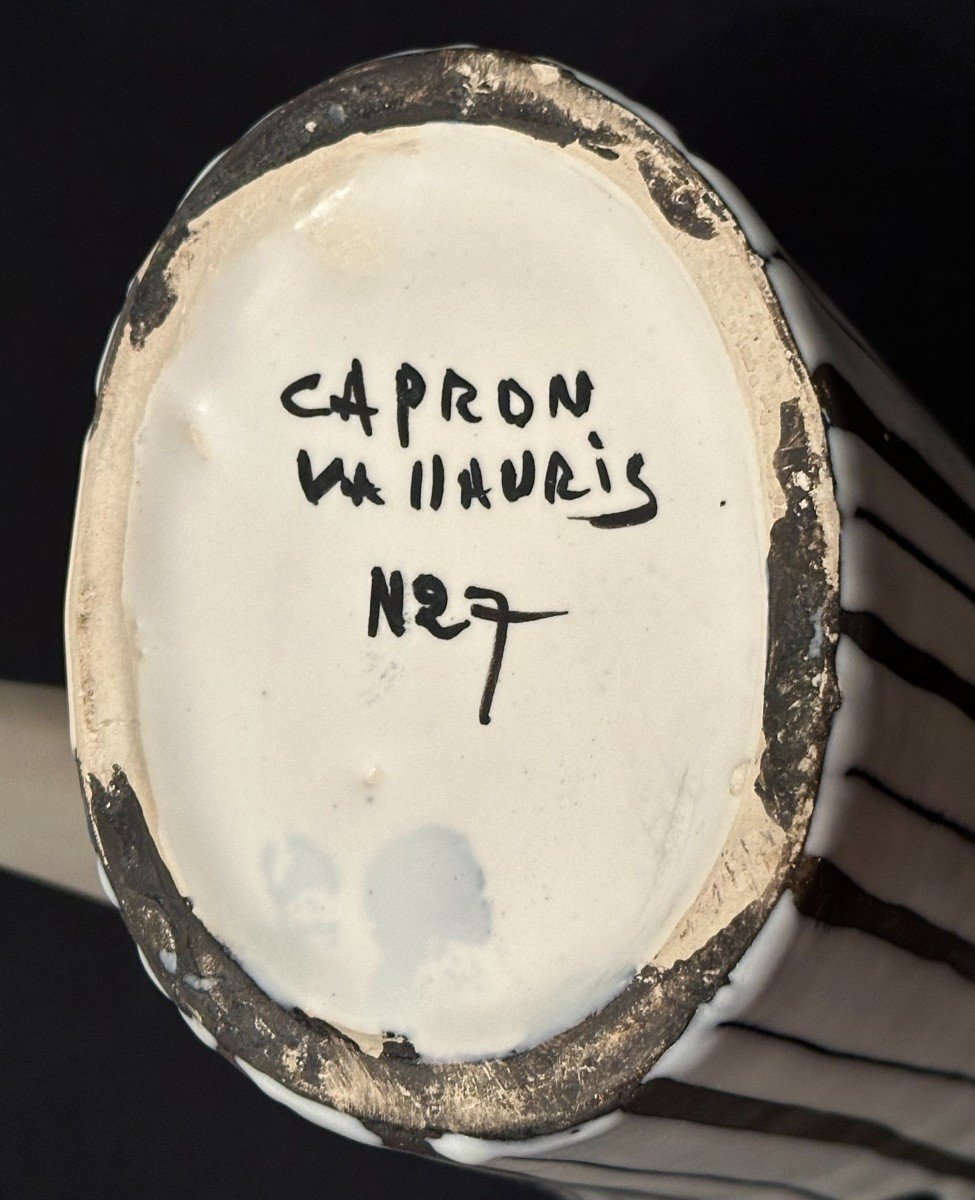 CAPRON
VALLAURiS
N27